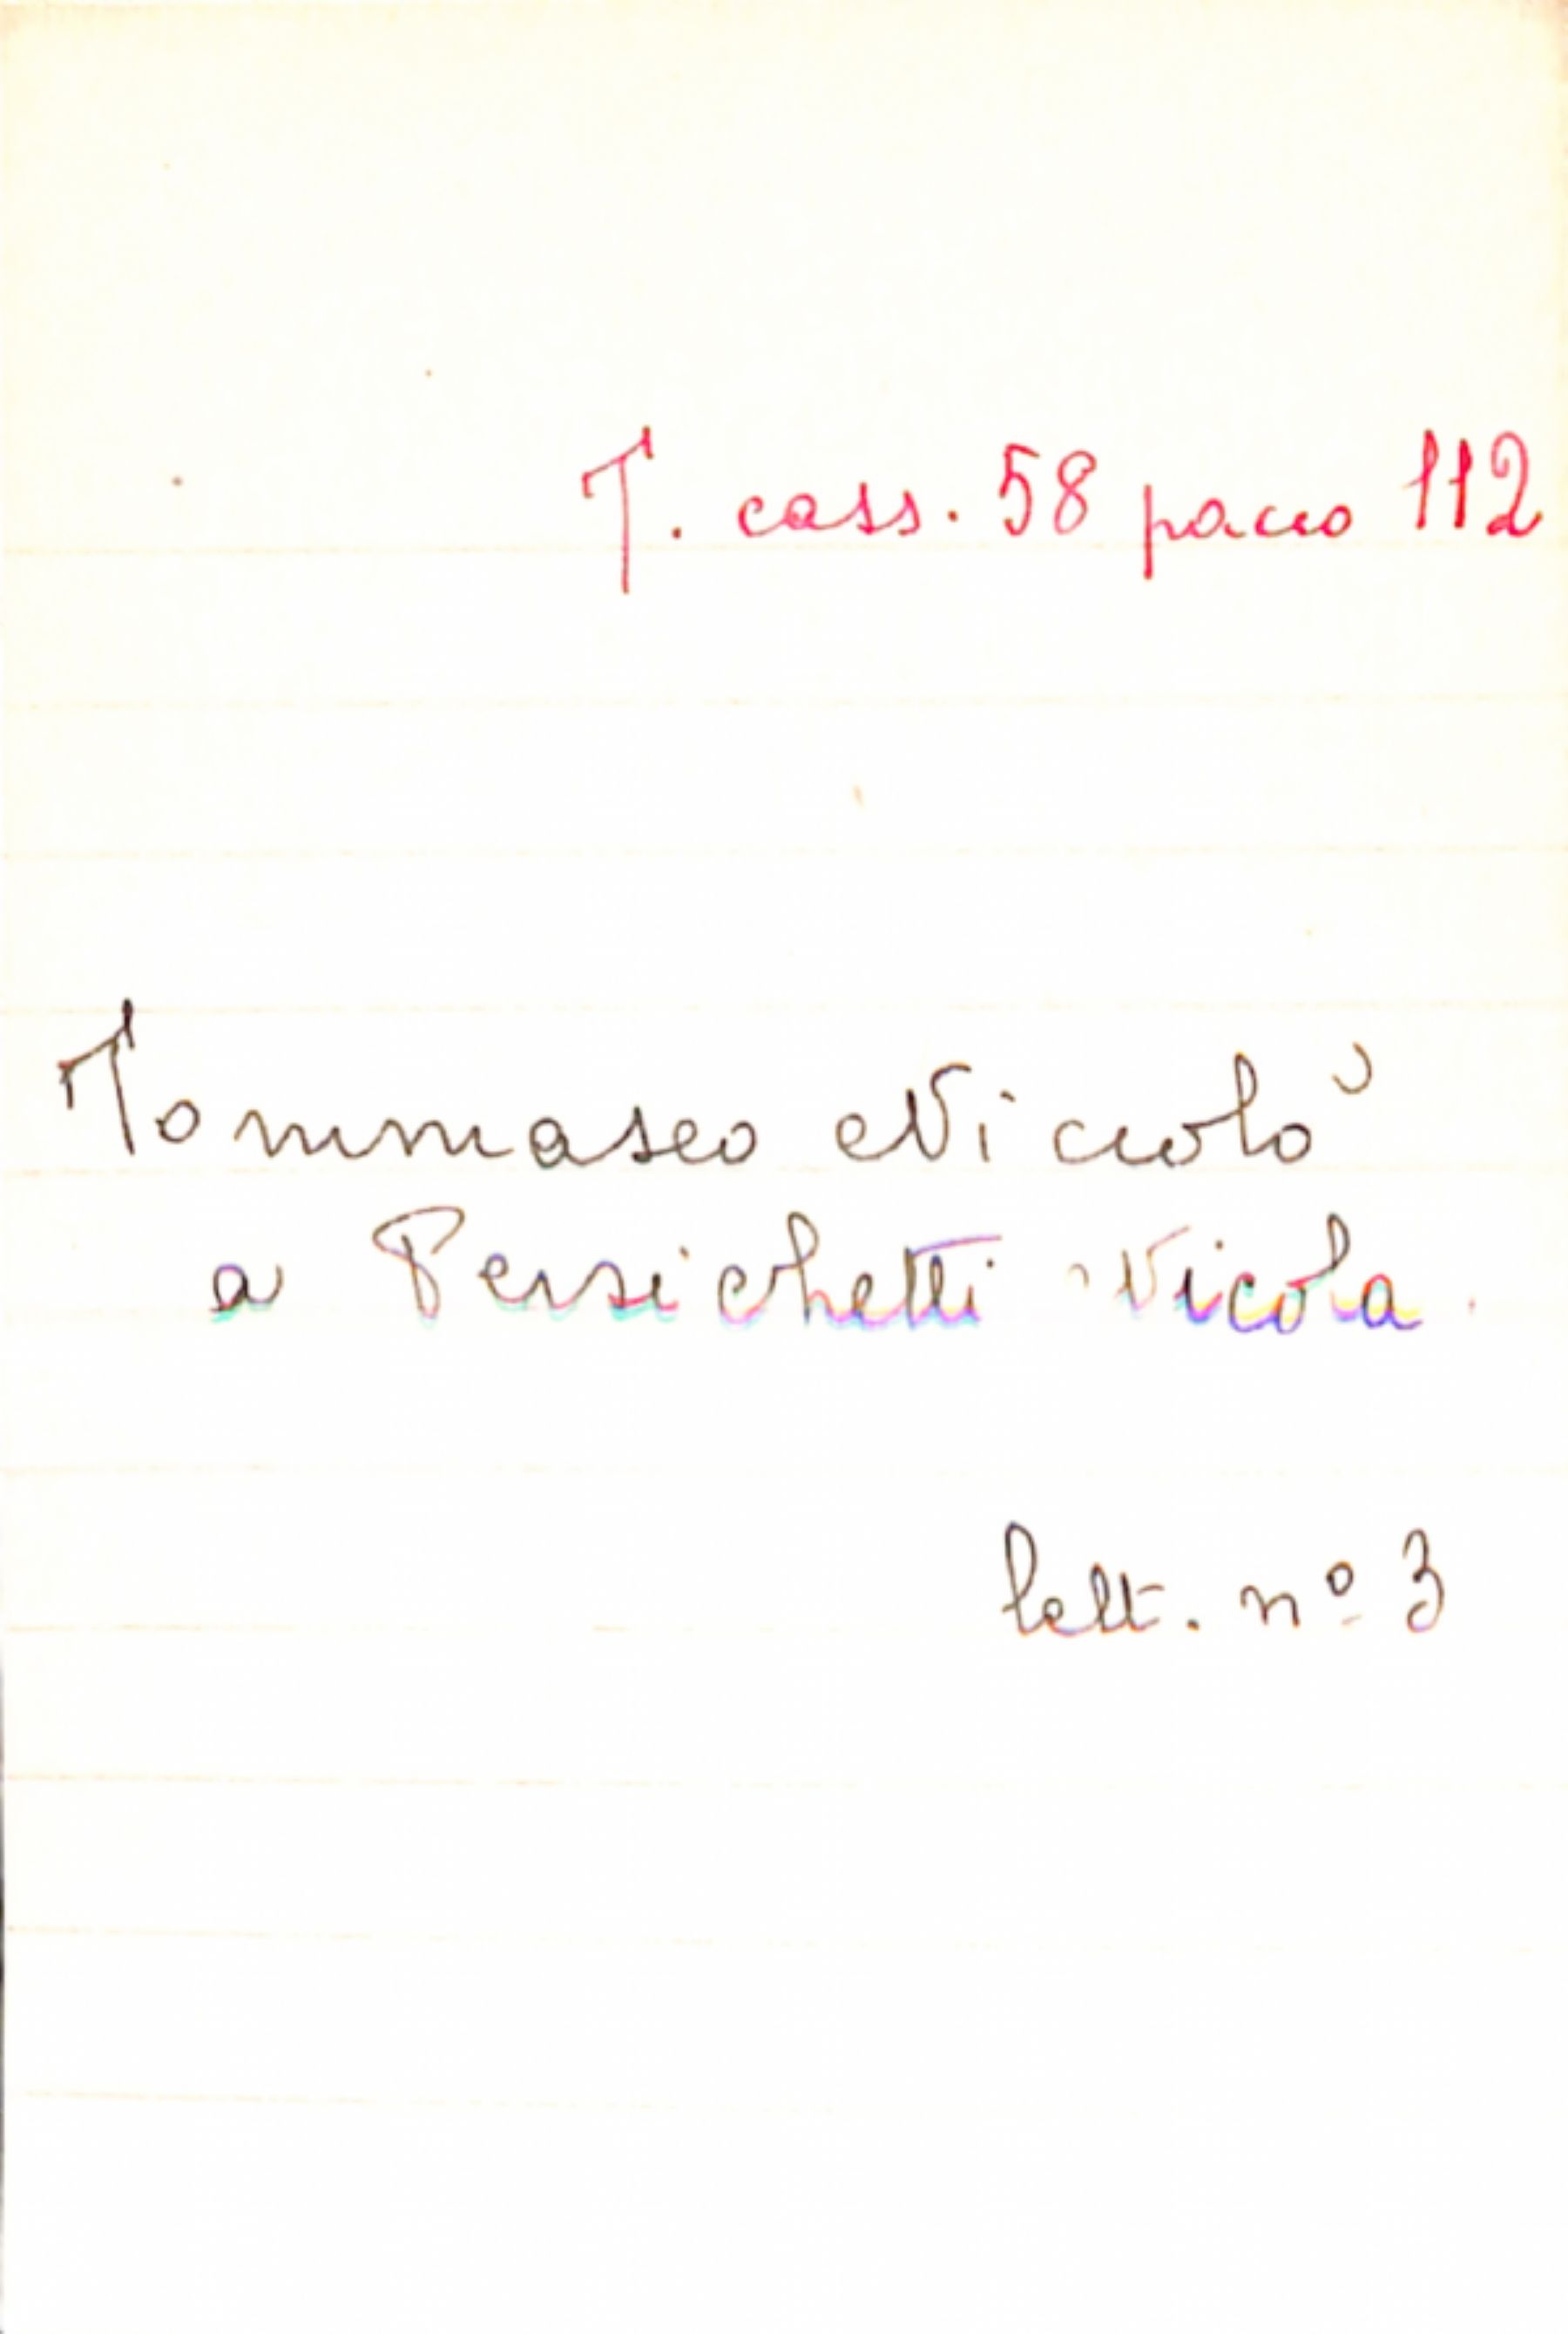 T. cass. 58 pacco 112
Tommaseo Niccolò
a Persichetti Nicola.
lett. nº 3